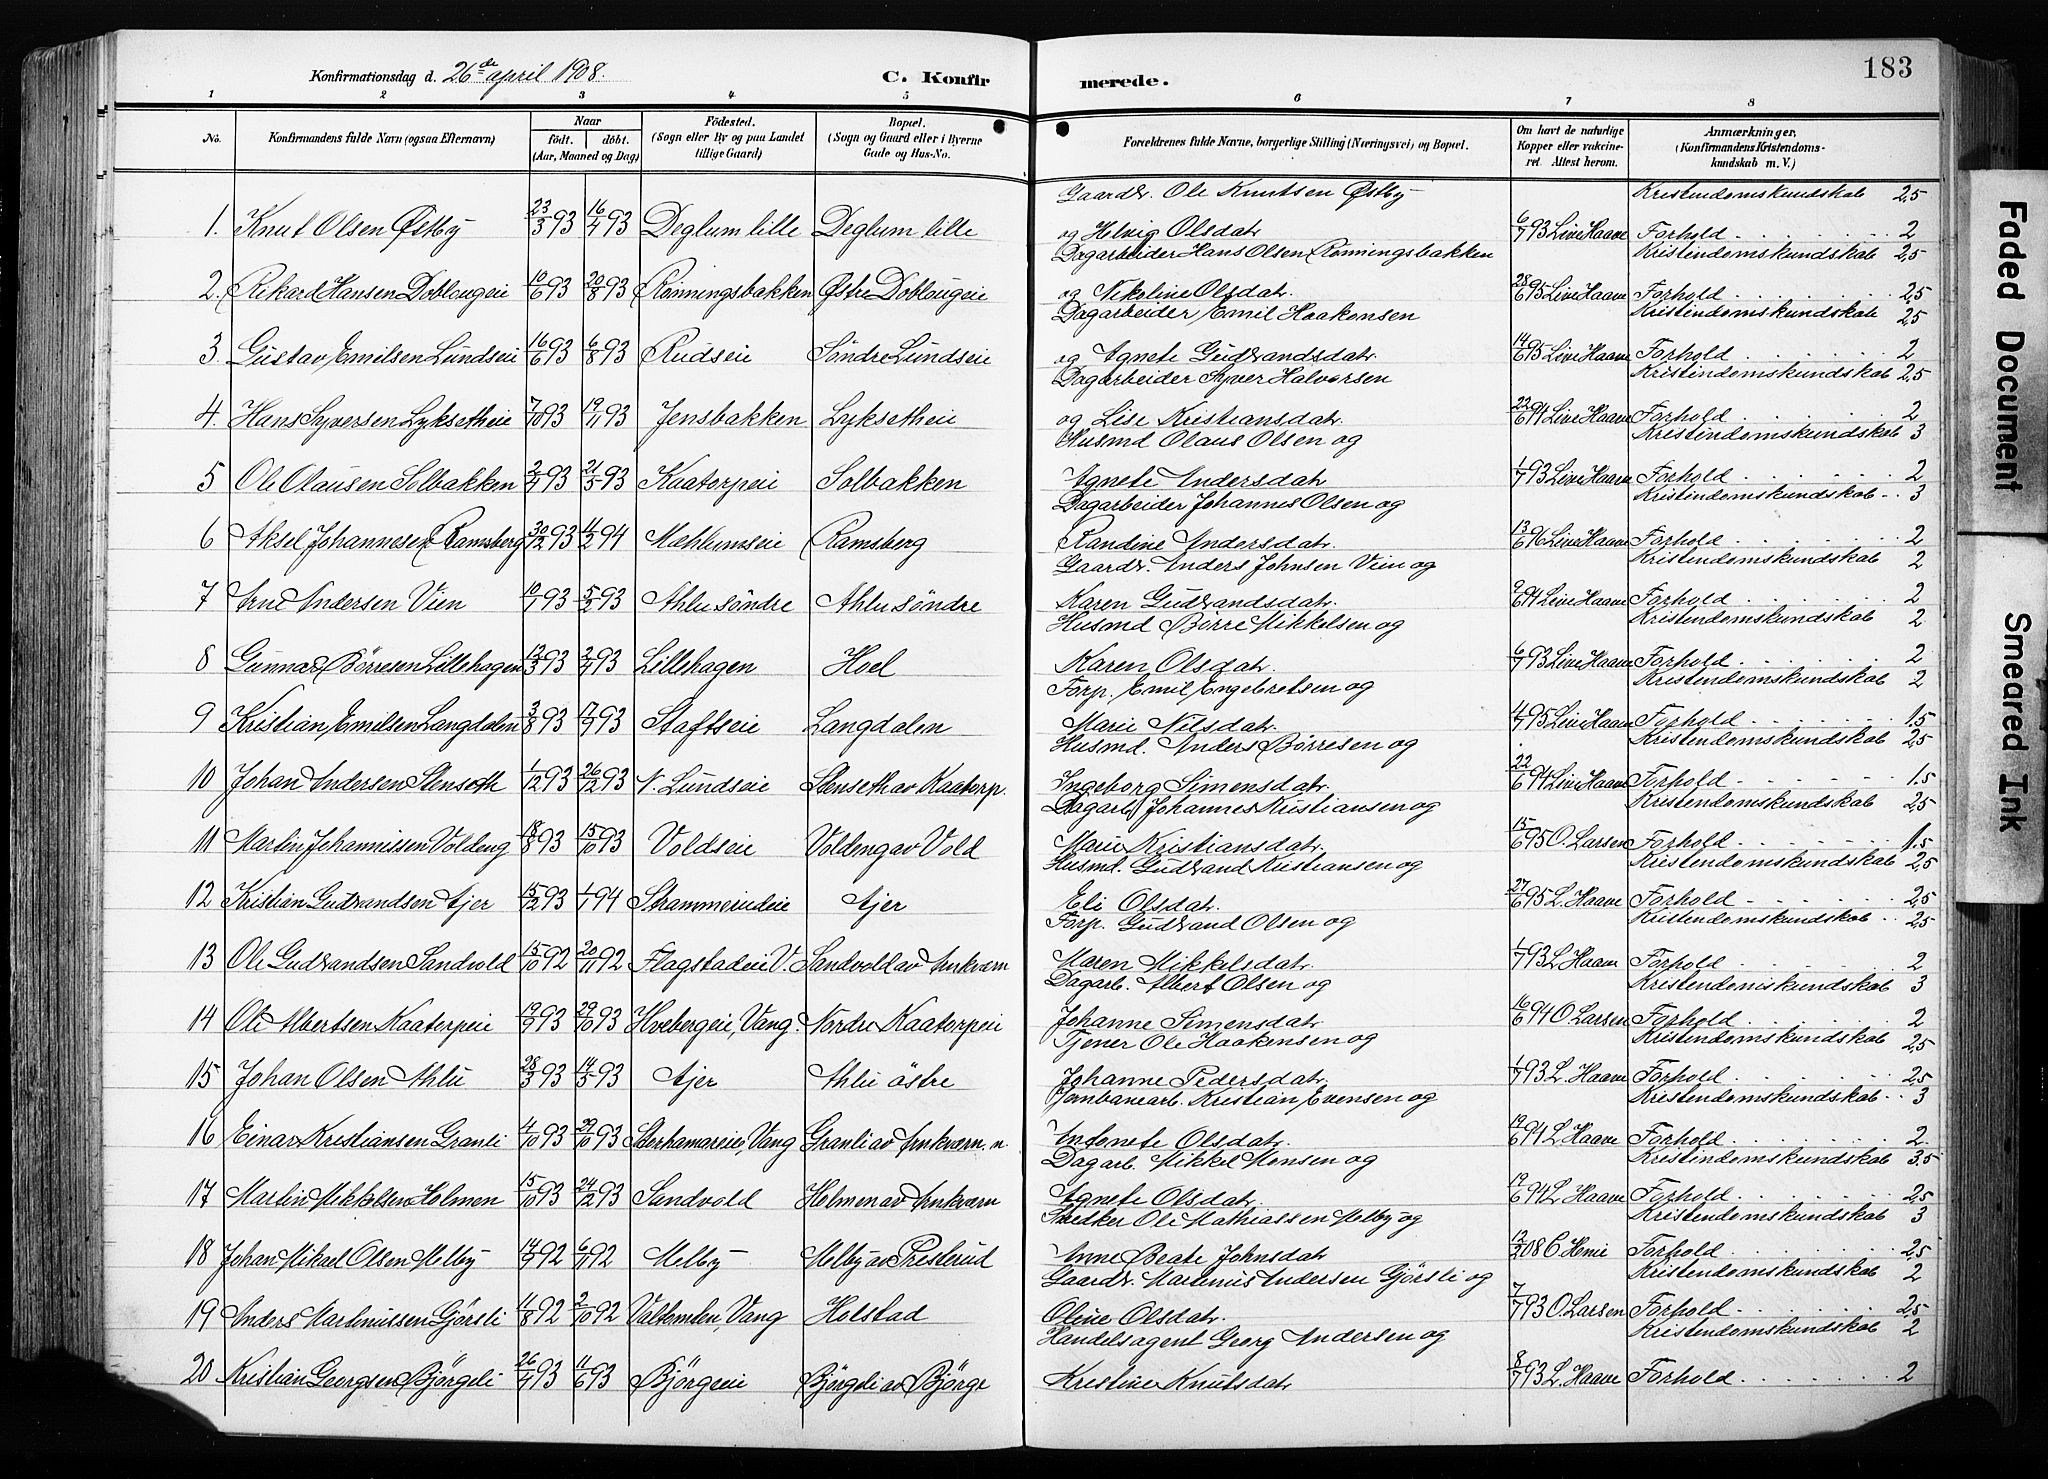 Konfirmationsdag d. 26de april 1908.
C. Konfir
merede.
183
1 2 3 4 5 6 7 8
No.
Konfirmandens fulde Navn (ogsaa Efternavn)
Naar
født. døbt.
(Aar, Maaned og Dag)
Fødested.
(Sogn eller By og paa Landet
tillige Gaard)
Bopæl.
(Sogn og Gaard eller i Byerne
Gade og Hus-No.
Forældrenes fulde Navne, borgerlige Stilling (Næringsvei) og Bopæl.
Om havt de naturlige
Kopper eller vakcine-
ret. Attest herom.
Anmærkninger,
(Konfirmandens Kristendoms-
kundskab m. V.)
Gaardbr. Ole Knutsen Østby Kristendomskundskab 2,5
1. Knut Olsen Østby 23/3 93 16/4 93 Deglum lille Deglum lille og Helvig Olsdatr. 6/7 93 Live Haave Forhold 2
Dagarbeider Hans Olsen Rønningsbakken Kristendomskundskab 2,5
2. Rikard Hansen Doblougeie 10/6 93 20/8 93 Rønningsbakken Østre Doblougeie og Nikoline Olsdatr. 28/6 95 Live Haave Forhold 2,5
Dagarbeider Emil Haakensen Kristendomskundskab 2,5
3. Gustav Emilsen Lundseie 16/6 93 6/8 93 Rudseie Søndre Lundseie og Agnete Gudbrandsdatr. 14/6 95 Live Haave Forhold 2
Dagarbeider Syver Halvorsen Kristendomskundskab 2,5
4. Hans Syversen Lyksetheie 7/10 93 19/11 93 Jensbakken Lyksetheie og Lise Kristiansdatr. 22/6 94 Live Haave Forhold 2
Husmd Olaus Olsen og Kristendomskundskab 3
5 Ole Olausen Solbakken 2/4 93 21/5 93 Kaatorpeie Solbakken Agnete Andersdatr 1/7 93 Live Haave Forhold 2
Dagarbeider Johannes Olsen og Kristendomskundskab 3
6 Aksel Johannesen Ramsberg 30/12 93 11/2 94 Mæhlumseie Ramsberg Randine Andersdatr. 13/6 96 Live Haave Forhold 2
Gaardbr. Anders Johnsen Vien og Kristendomskundskab 2
7 Arne Andersen Vien 10/1 93 5/3 93 Ahlu søndre Ahlu søndre Karen Gudbrandsdatr. 9/6 94 Live Haave Forhold 2
Husmd Børre Mikkelsen og Kristendomskundskab 2
8 Gunnar Børresen Lillehagen 12/3 93 2/4 93 Lillehagen Hoel Karen Olsdatr. 6/7 93 Live Haave Forhold 2
Forp. Emil Engebretsen og Kristendomskundskab 2
9 Kristian Emilsen Langdalen 3/8 93 17/9 93 Staftseie Langdalen Marie Nilsdatr. 4/7 95 Live Haave Forhold 1.5
Husmd. Anders Børresen og Kristendomskundskab 2,5
10 Johan Andersen Stenseth 1/12 93 26/12 93 N. Lundseie Stenseth av Kaatorp. Ingeborg Simensdatr. 22/6 94 Live Haave Forhold 1.5
Dagarb. Johannes Kristiansen og Kristendomskundskab 2,5
11 Martin Johannissen Voldeng 18/8 93 15/10 93 Voldseie Voldeng av Vold Marie Kristiansdatr. 15/6 95 O. Larsen Forhold 1.5
Husmd. Gudbrand Kristiansen og Kristendomskundskab 2,5
12 Kristian Gudbrandsen Ajer 15/12 93 1/1 94 Strammerudeie Ajer Eli Olsdatr. 27/6 95 L. Haave Forhold 2,5
Forp. Gudbrand Olsen og Kristendomskundskab 2,5
13 Ole Gudbrandsen Sandvold 15/10 92 20/11 92 Flagstadeie V. Sandvold av Ankværn Maren Mikkelsdatr. 1/7 93 L. Haave Forhold 2
Dagarb. Albert Olsen og Kristendomskundskab 3
14 Ole Albertsen Kaatorpeie 19/9 93 29/10 93 Hvebergeie, Vang. Nordre Kaatorpeie Johanne Simensdatr 16/6 94 O Larsen Forhold 2
Tjener Ole Haakensen og Kristendomskundskab 2,5
15 Johan Olsen Ahlu 28/3 93 14/5 93 Ajer Ahlu østre Johanne Pedersdatr. 1/7 93 L. Haave Forhold 2,5
Jernbanearb. Kristian Evensen og Kristendomskundskab 3
16 Einar Kristiansen Granli 4/10 93 29/10 93 Storhamareie, Vang Granli av Ankværn. n. Antonete Olsdatr. 19/6 94 L. Haave Forhold 2.
Dagarb. Mikkel Monsen og Kristendomskundskab 3.5
17 Martin Mikkelsen Holmen 15/10 93 24/12 93 Sandvold Holmen av Ankværn Agnete Olsdatr. 19/6 94 L. Haave Forhold 2,5
Snedker Ole Mathiassen Melby og Kristendomskundskab 3
18 Johan Mikael Olsen Melby 14/9 92 6/11 92 Melby Melby av Presterud Anne Beate Johnsdatr 12/2 08 C. Hemie Forhold 2,5
Gaardbr. Martinus Andersen Gjørsli og Kristendomskundskab 2
19 Anders Martinussen Gjørsli 11/8 92 2/10 92 Valtomten, Vang Holstad Oline Olsdatr. 7/7 93 O. Larsen Forhold 2,5
Handelsagent Georg Andersen og Kristendomskundskab 2
20 Kristian Georgsen Bjørgeli 26/4 93 11/6 93 Bjørgeie Bjørgeli av Bjørge Kristine Knutsdatr 8/7 93 L. Haave Forhold 2
Faded Document
Smeared Ink